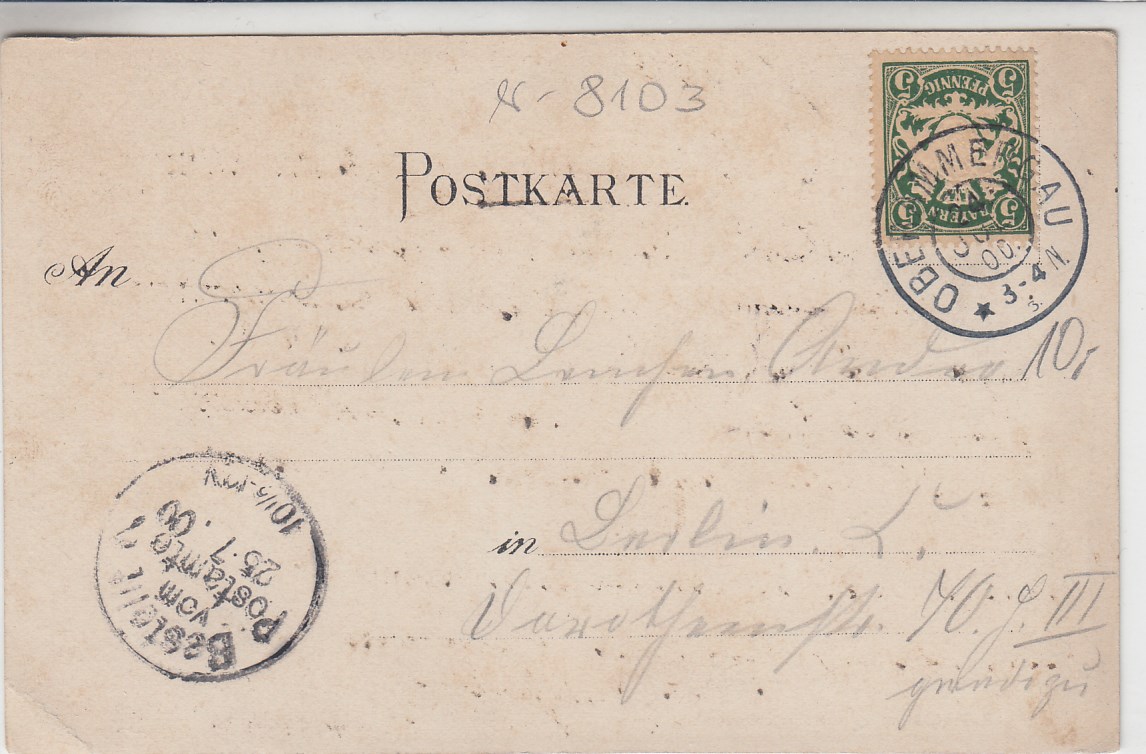 8103
POSTKARTE
5 PFENNIG 5
5 BAYERN 5
OBERAMMERGAU
JUL
00
3-4 N.
An
Fräulein Lenchen
10
in Berlin.
Dorotheenstr. 70. III
Bestellt
vom
Postamte 7
25.7.00
10½-